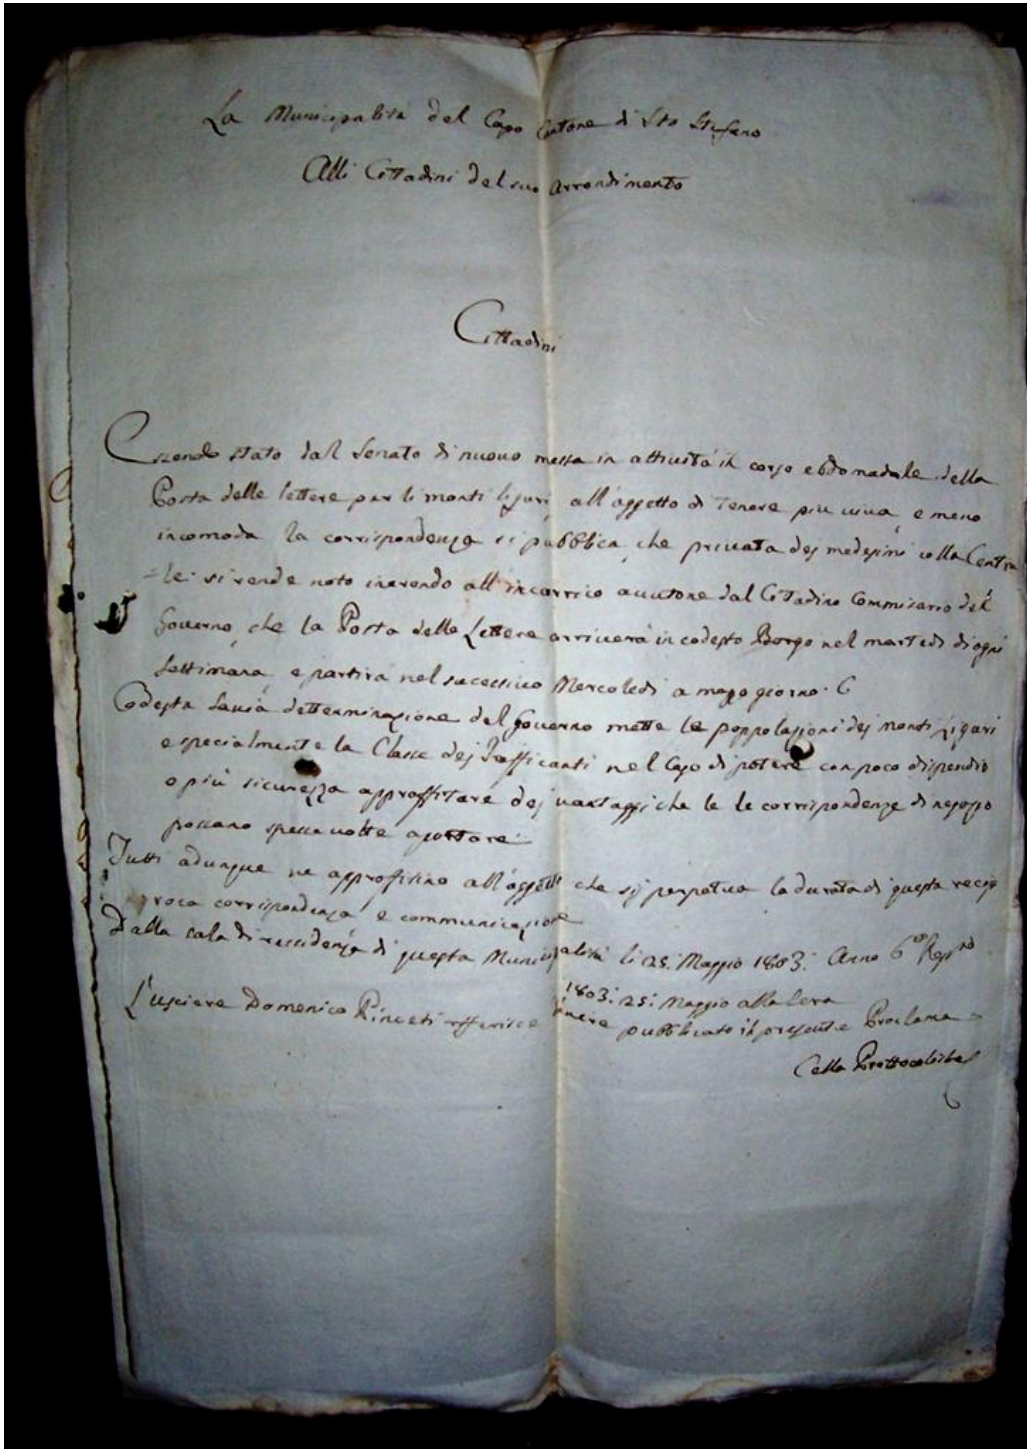 La Municipalità del Capo Cantone di Sto Stefano
Alli Cittadini del suo Arrondimento
Cittadini
Essendo stato dal Senato di nuovo messa in attività il corso ebdomadale della
Posta delle lettere per li monti liguri, all'oggetto di tenere più viva, e meno
incomoda la corrispondenza sì pubblica, che privata dei medesimi colla Centra
=le: si rende noto inerendo all'incarrico avutone dal Cittadino Commissario del
Governo, che la Posta delle Lettere arriverà in codesto Borgo nel martedì di ogni
Settimana, e partirà nel successivo Mercoledì a mezzo giorno.
Codesta savia determinazione del Governo mette le poppolazioni dei monti Liguri
e specialmente la Classe dei Trafficanti nel Caso di potere con poco dispendio
o più sicurezza approffittare dei vantaggi che le le corrispondenze di negozio
possano spesse volte apportare.
Tutti adunque ne approfitino all'oggetto che si perpetua la durata di questa recip
roca corrispondenza e communicazione
Dalla sala di residenza di questa Municipalità li 25: Maggio 1803: Anno 6º
1803: 25: Maggio alla sera
L'usciere Domenico Rinceti rifferisce avere pubblicato il presente Proclama =
Cella Prottocolista